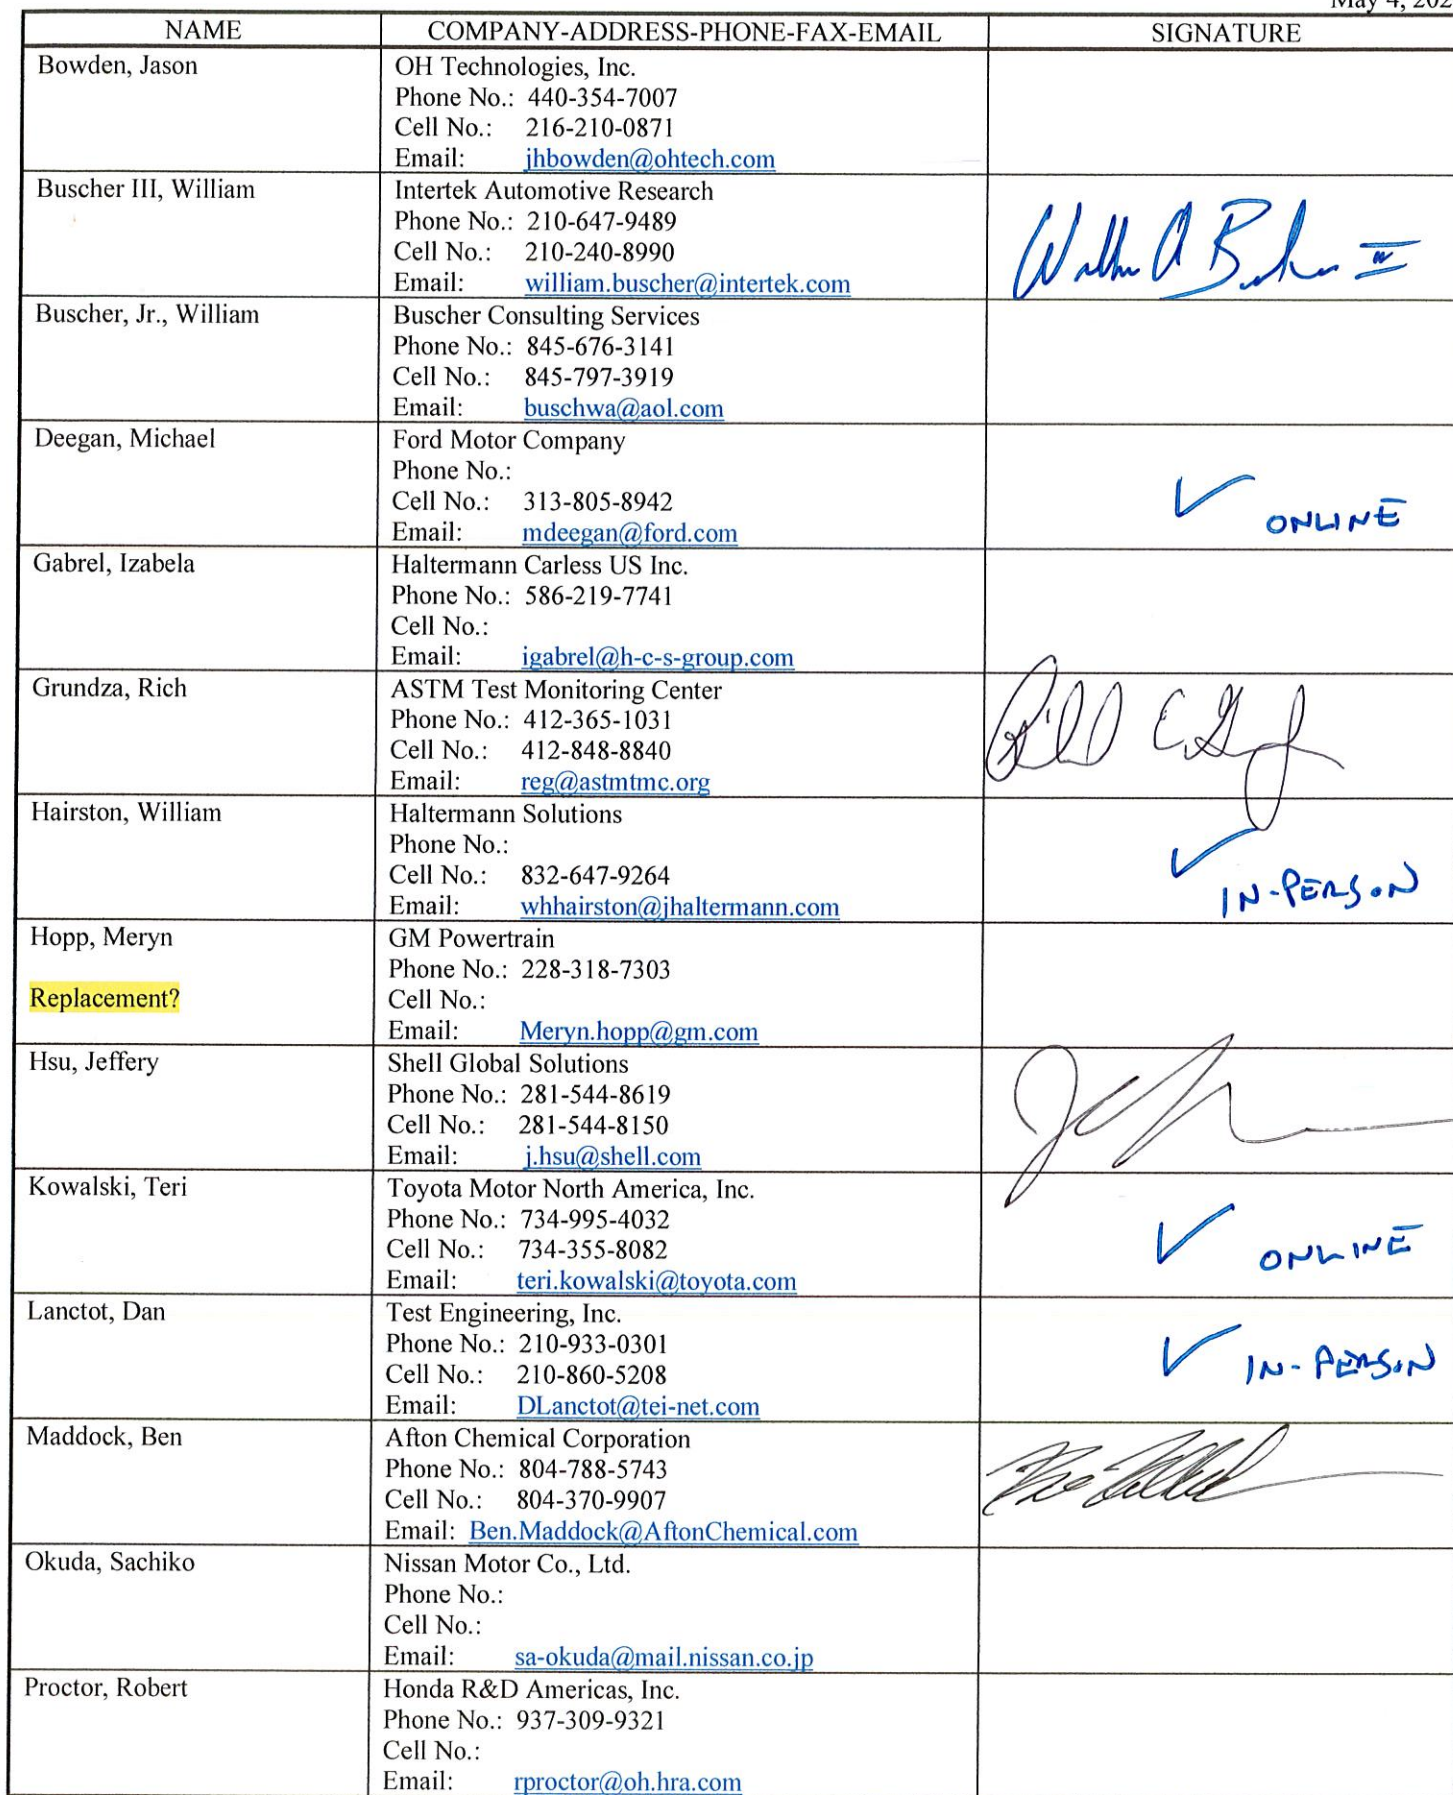 May 4, 202
NAME COMPANY-ADDRESS-PHONE-FAX-EMAIL SIGNATURE
Bowden, Jason OH Technologies, Inc.
Phone No.: 440-354-7007
Cell No.: 216-210-0871
Email: jhbowden@ohtech.com
Buscher III, William Intertek Automotive Research
Phone No.: 210-647-9489
Cell No.: 210-240-8990
Email: william.buscher@intertek.com
Buscher, Jr., William Buscher Consulting Services
Phone No.: 845-676-3141
Cell No.: 845-797-3919
Email: buschwa@aol.com
Deegan, Michael Ford Motor Company
Phone No.:
Cell No.: 313-805-8942
✓ ONLINE
Email: mdeegan@ford.com
Gabrel, Izabela Haltermann Carless US Inc.
Phone No.: 586-219-7741
Cell No.:
Email: igabrel@h-c-s-group.com
Grundza, Rich ASTM Test Monitoring Center
Phone No.: 412-365-1031
Cell No.: 412-848-8840
Email: reg@astmtmc.org
Hairston, William Haltermann Solutions
Phone No.:
Cell No.: 832-647-9264
✓ IN-PERSON
Email: whhairston@jhaltermann.com
Hopp, Meryn GM Powertrain
Phone No.: 228-318-7303
Replacement? Cell No.:
Email: Meryn.hopp@gm.com
Hsu, Jeffery Shell Global Solutions
Phone No.: 281-544-8619
Cell No.: 281-544-8150
Email: j.hsu@shell.com
Kowalski, Teri Toyota Motor North America, Inc.
Phone No.: 734-995-4032
Cell No.: 734-355-8082
✓ ONLINE
Email: teri.kowalski@toyota.com
Lanctot, Dan Test Engineering, Inc.
Phone No.: 210-933-0301
Cell No.: 210-860-5208
✓ IN-PERSON
Email: DLanctot@tei-net.com
Maddock, Ben Afton Chemical Corporation
Phone No.: 804-788-5743
Cell No.: 804-370-9907
Email: Ben.Maddock@AftonChemical.com
Okuda, Sachiko Nissan Motor Co., Ltd.
Phone No.:
Cell No.:
Email: sa-okuda@mail.nissan.co.jp
Proctor, Robert Honda R&D Americas, Inc.
Phone No.: 937-309-9321
Cell No.:
Email: rproctor@oh.hra.com